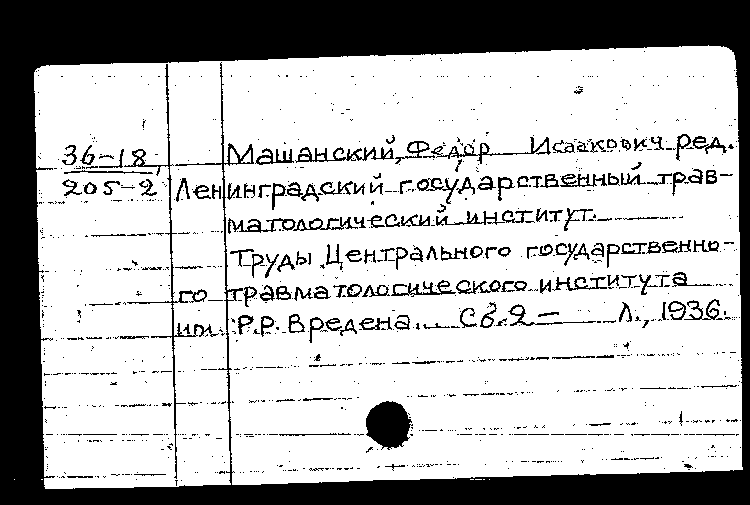 36-18
205-2
Машанский, Федор Исаакович ред.
Ленинградский государственный трав-
матологический институт.
Труды Центрального государственно-
го травматологического института
им. Р.Р. Вредена... Сб. 2- Л., 1936.